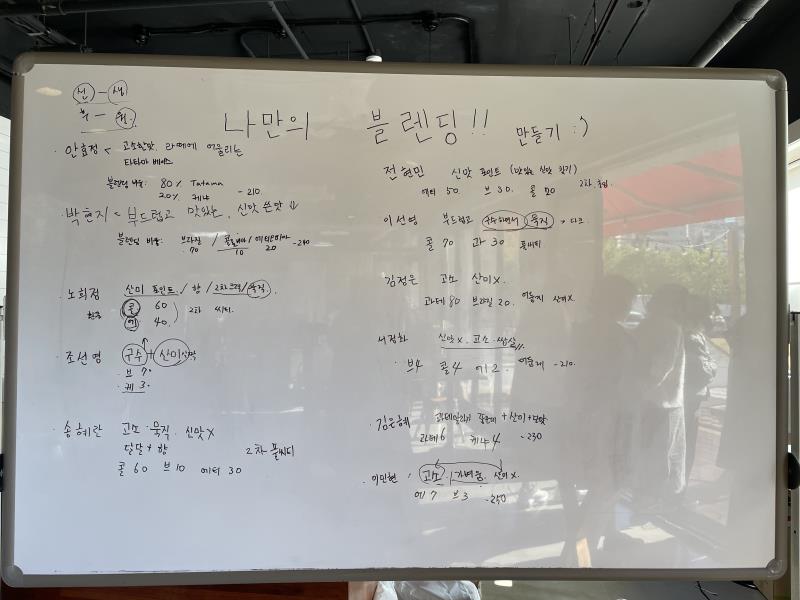 신 - 생
나만의 블렌딩!! 만들기 :)
안효정 < 고소한맛, 라떼에 어울리는
타타마 베이스
블렌딩 비율: 80% Tatama
20% 케냐 -210.
박현지 < 부드럽고 맛있는, 신맛 쓴맛↓
블렌딩 비율: 브라질 / 콜롬비아 / 에티오피아 -240
70 10 20
노희정 산미 포인트 / 향 / 2차크랙 / 묵직.
콜 60
에 40. 2차 씨티.
조선영 구수 + 산미
브 7.
케 3.
송혜란 고소 · 묵직 · 신맛X
달달 + 향 2차 풀씨티
콜 60 브 10 에티 30
전현민 신맛 포인트 (맛있는 신맛 찾기)
에티 50. 브 30. 콜 20 2차
이선영 부드럽고 구수하면서 묵직 → 다크.
콜 70 과 30 풀씨티
김정은 고소 산미X.
과테 80 브라질 20. 산미X.
서정화 신맛X. 고소. 쌉쌀
브4 콜4 에2 -210.
김은혜 + 산미 + 단맛
과테6 케냐4 -230
이민현 고소, 가벼움, 산미X.
에7 브3 -250